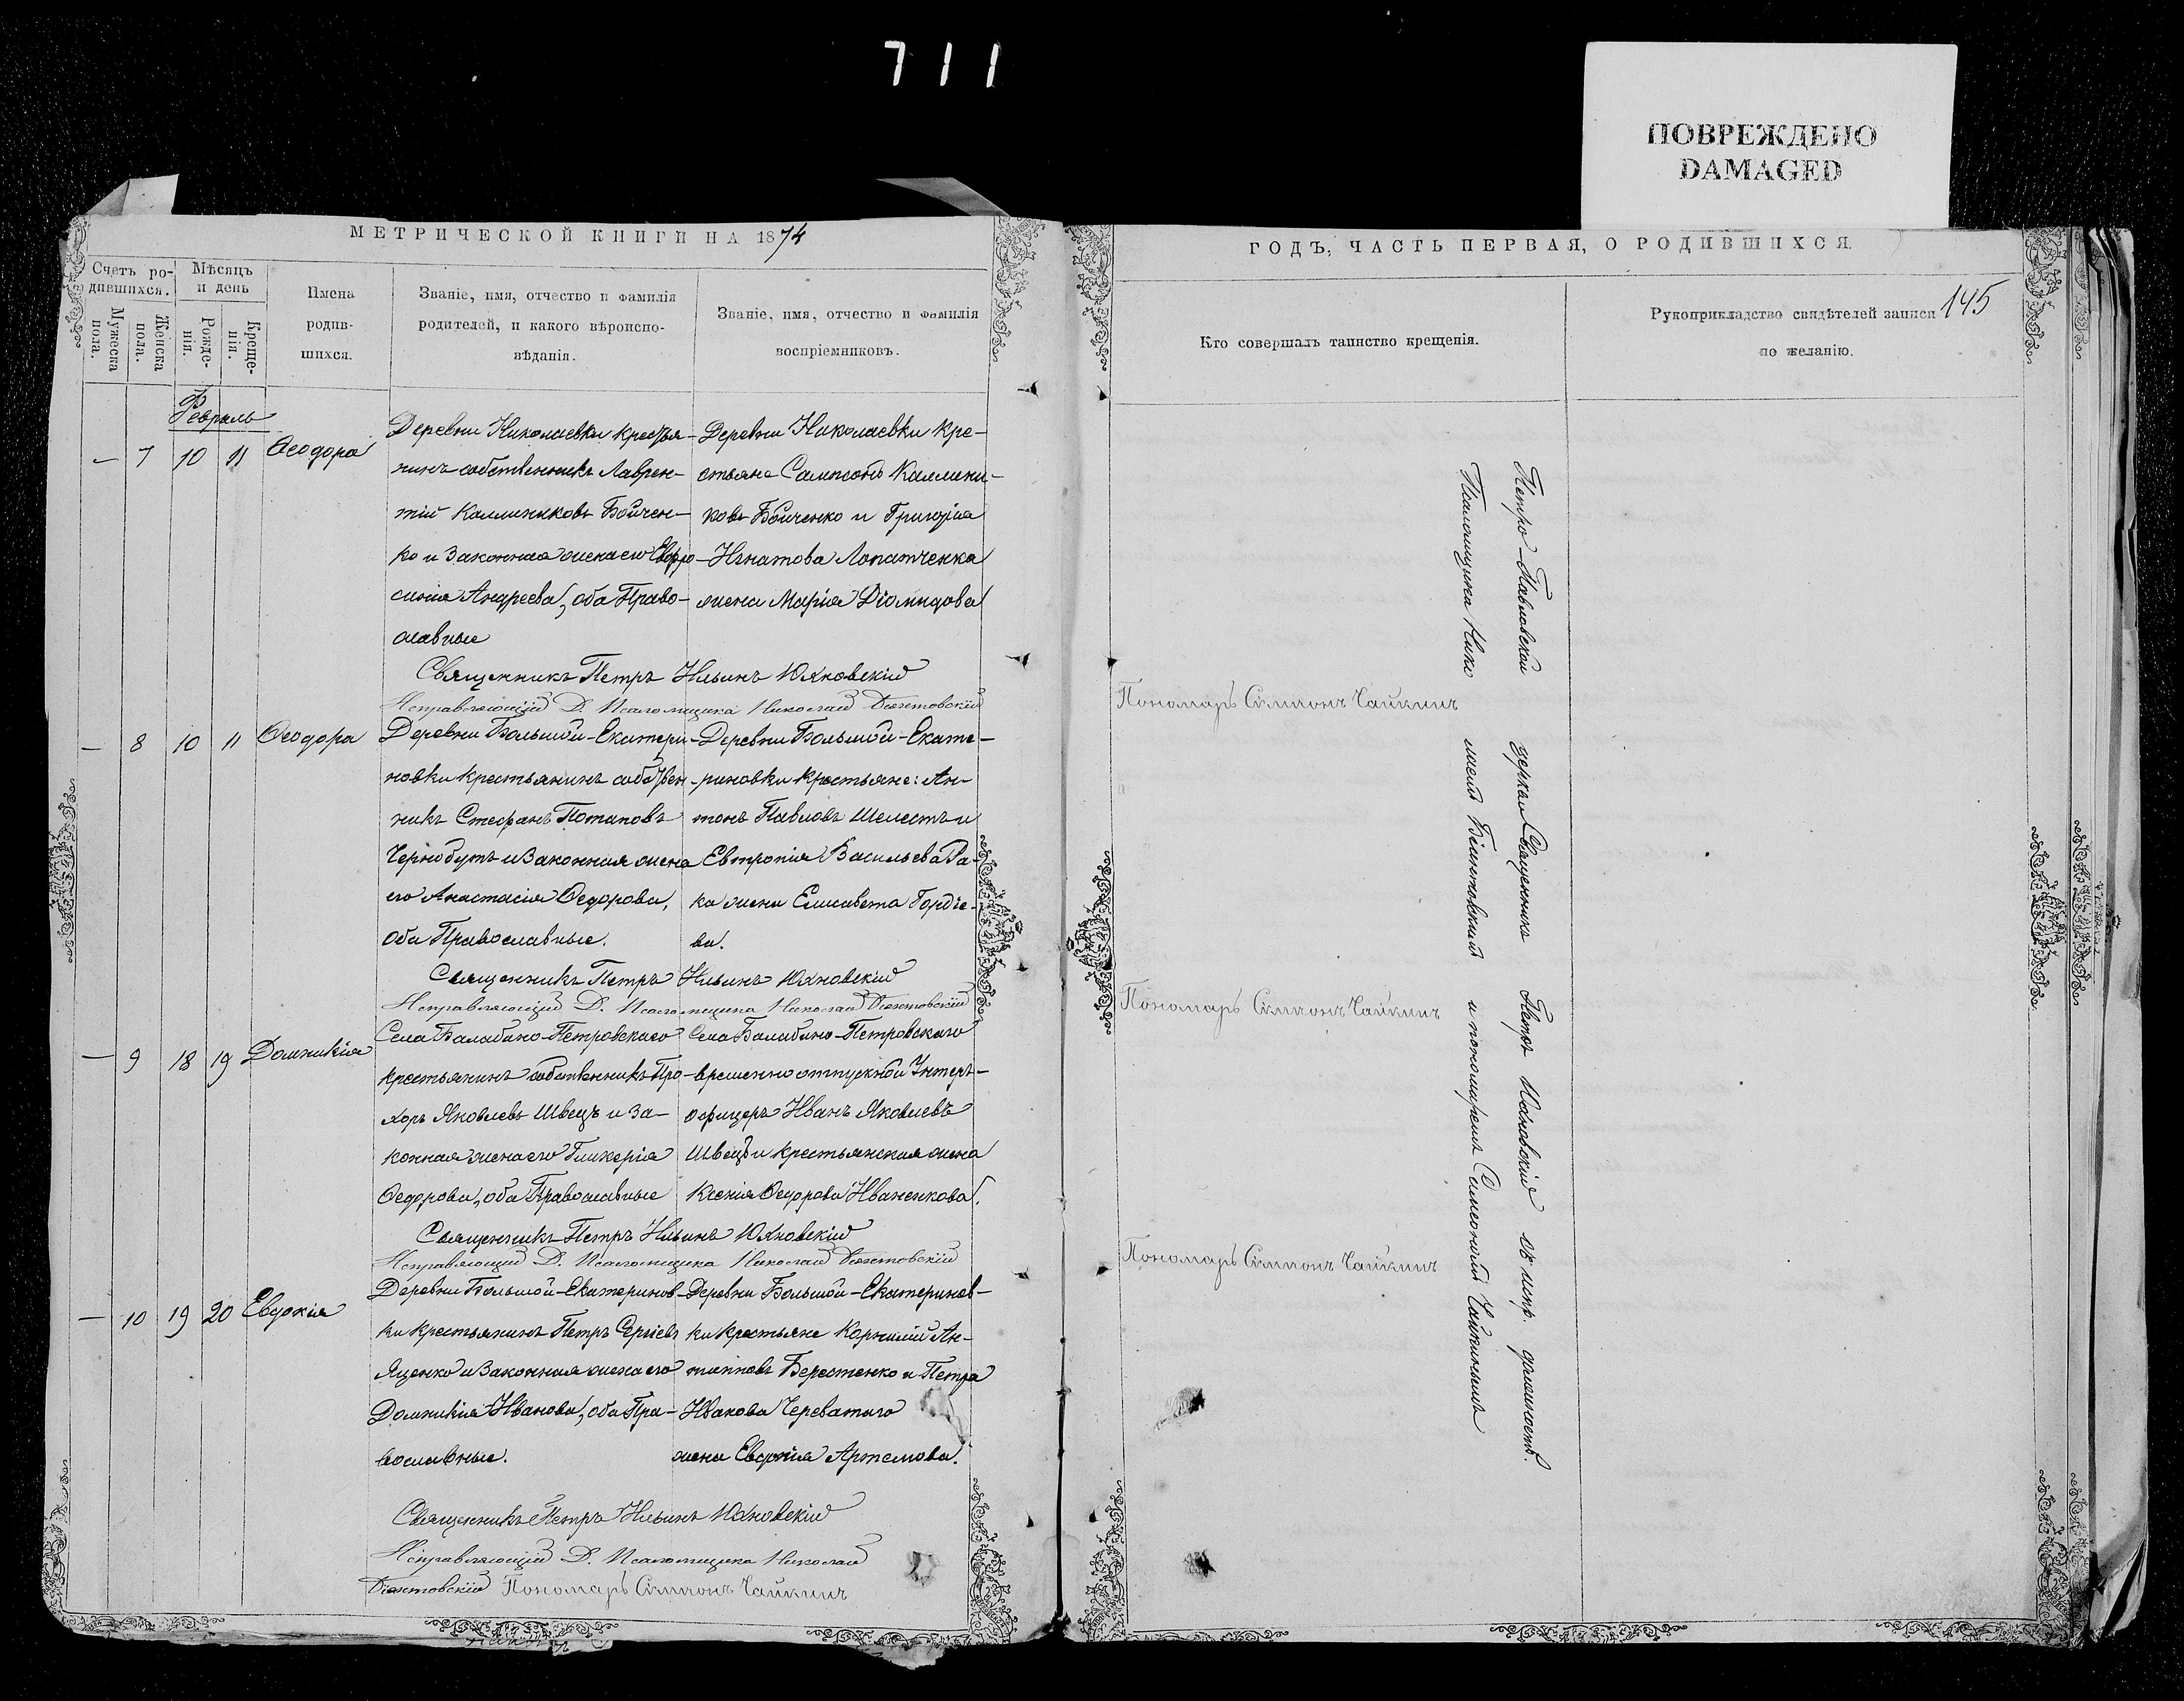 711
ПОВРЕЖДЕНО
DAMAGED
МЕТРИЧЕСКОЙ КНИГИ НА 1874
Счетъ ро-
дившихся.
Мужеска
пола.
Женска
пола.
Мѣсяцъ
и день
Рожде-
нія.
Креще-
нія.
Имена
родив-
шихся.
Званіе, имя, отчество и фамилія
родителей, и какого вѣроиспо-
вѣданія.
Званіе, имя, отчество и фамилія
воспріемниковъ.
Февраль
— 7 10 11 Ѳеодора
Деревни Николаевки крестья-
нинъ собственникъ Лаврен-
тій Каллиниковъ Бойчен-
ко и законная жена его Евфро-
синія Андреева, оба Право-
славные
Деревни Николаевки кре-
стьяне Сампсонъ Каллини-
ковъ Бойченко и Григорія
Игнатова Лопатченка
жена Марія Діомидова
Священникъ Петръ Ильинъ Юхновскій
Исправляющій Д. Псаломщика Николай
— 8 10 11 Ѳеодора
Деревни Большой-Екатери-
новки крестьянинъ собствен-
никъ Стефанъ Потаповъ
Чернобутъ и законная жена
его Анастасія Ѳедорова,
оба Православные.
Деревни Большой-Екате-
риновки крестьяне: Ан-
тонъ Павловъ Шелестъ и
Евтропія Васильева Ра-
ка жена Елисавета Гордіе-
ва.
Священникъ Петръ Ильинъ Юхновскій
Исправляющій Д. Псаломщика Николай
— 9 18 19 Домникія
Села Балабино-Петровскаго
крестьянинъ собственникъ Про-
хоръ Яковлевъ Швецъ и за-
конная жена его Гликерія
Ѳедорова, оба Православные
Села Балабино-Петровскаго
временно отпускной Унтеръ-
офицеръ Иванъ Яковлевъ
Швецъ и крестьянская жена
Ксенія Ѳедорова Иваненкова.
Священникъ Петръ Ильинъ Юхновскій
Исправляющій Д. Псаломщика Николай
— 10 19 20 Евдокія
Деревни Большой-Екатеринов-
ки крестьянинъ Петръ Сергіевъ
Яценко и законная жена его
Домникія Иванова, оба Пра-
вославные.
Деревни Большой-Екатеринов-
ки крестьяне Корнилій Ан-
типовъ Берестенко и Петра
Иванова Череватаго
жена Евдокія Артемова.
Священникъ Петръ Ильинъ Юхновскій
Исправляющій Д. Псаломщика Николай
Пономарь Симеонъ Чайкинъ
ГОДЪ, ЧАСТЬ ПЕРВАЯ, О РОДИВШИХСЯ.
145
Кто совершалъ таинство крещенія.
Рукоприкладство свидѣтелей записи
по желанію.
Петро-Павловской церкви Священникъ Петръ Юхновскій съ испр. должность
Псаломщика Николаемъ и пономаремъ Симеономъ Чайкинымъ
Пономарь Симеонъ Чайкинъ
Пономарь Симеонъ Чайкинъ
Пономарь Симеонъ Чайкинъ